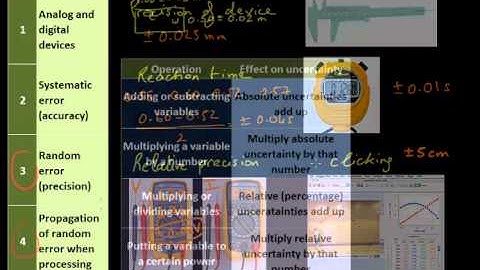 1
Analog and
digital
devices
2
Systematic
error
(accuracy)
3
Random
error
(precision)
4
Propagation
of random
error when
processing
Precision of device
± 0.025 mm
Reaction time
0.57
± 0.01s
0.60 - 0.52
2
± 0.04s
Relative precision
Clicking
± 5 cm
Operation
Effect on uncertainty
Adding or subtracting
variables
Absolute uncertainties
add up
Multiplying a variable
by a number
Multiply absolute
uncertainty by that
number
Multiplying or
dividing variables
Relative (percentage)
unceratainties add up
Putting a variable to
a certain power
Multiply relative
uncertainty by that
number